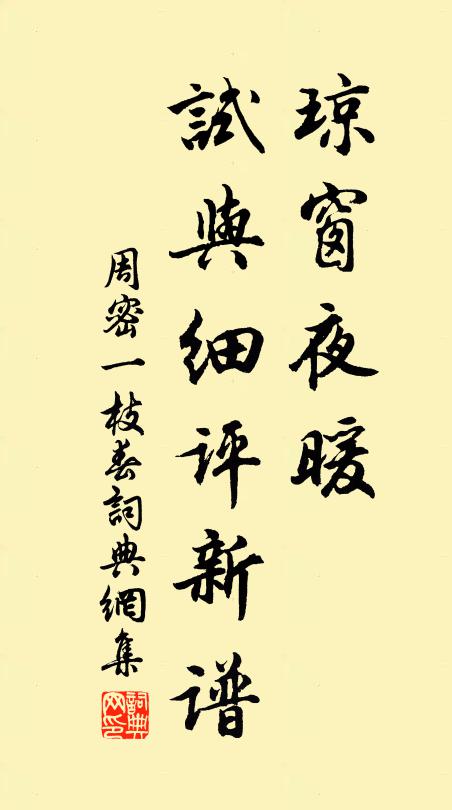 琼窗夜暖
試與细评新谱
周密一枝春詞典網集
詞典網印